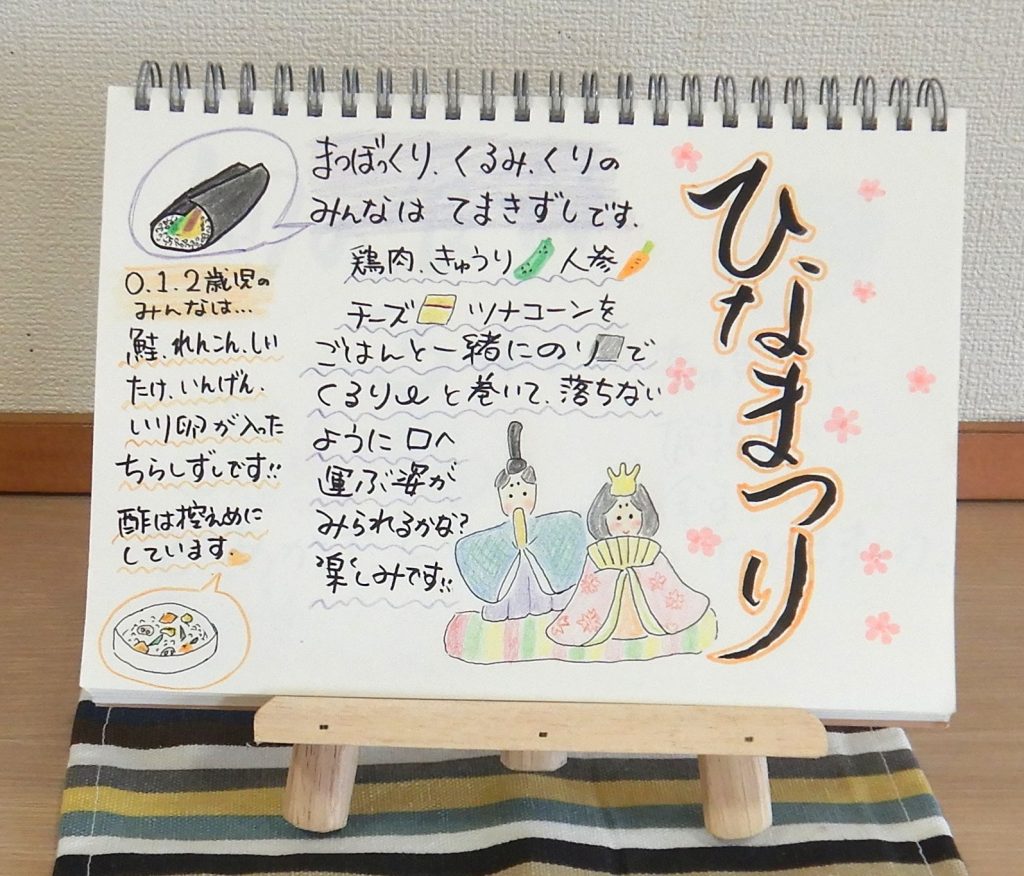 ひなまつり
まつぼっくり、くるみ、くりの
みんなは てまきずしです。
鶏肉、きゅうり 人参
チーズ ツナコーンを
ごはんと一緒にのりで
くるりと巻いて、落ちない
ように口へ
運ぶ姿が
みられるかな?
楽しみです!!
0.1.2歳児の
みんなは…
鮭、れんこん、しい
たけ、いんげん、
いり卵が入った
ちらしずしです!!
酢は控えめに
しています。